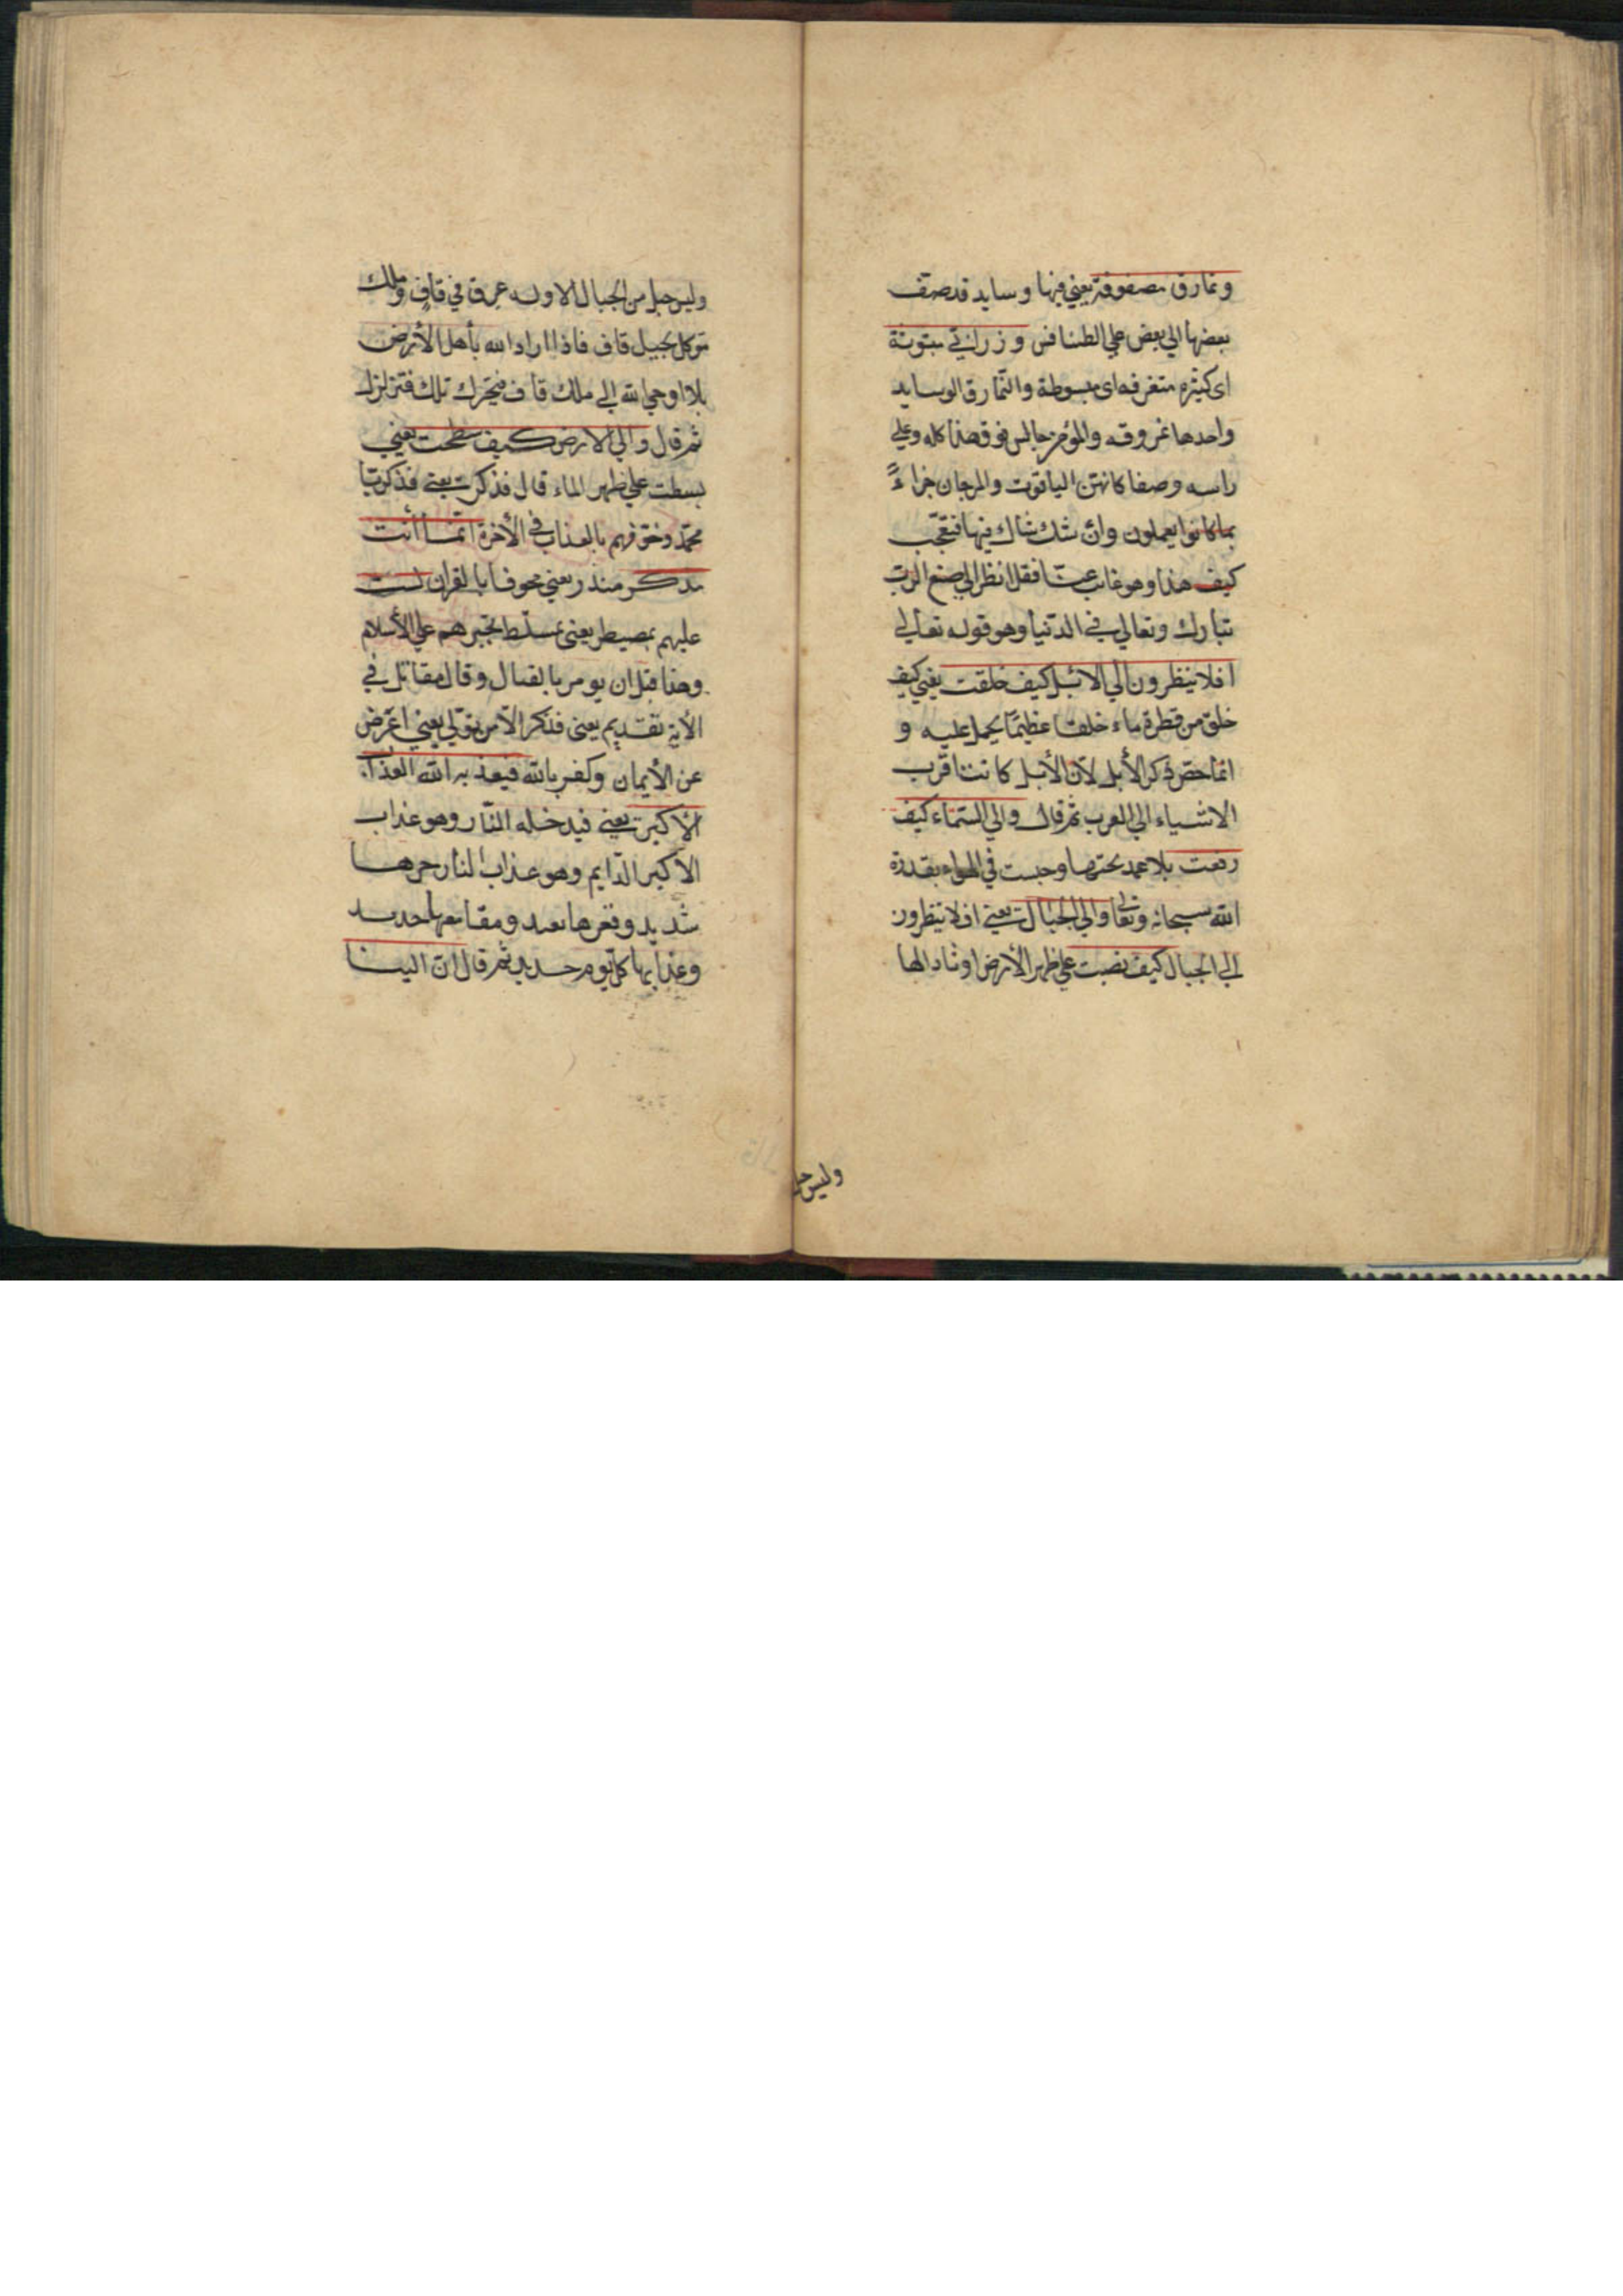 ونمارق مصفوفة يعني فيها وسايد قدصف
بعضها الي بعض علي الطنافس وزرابي مبثوثة
اى كثيره متفرقه اى مبسوطة والنمارق الوسايد
واحدها نمروقه والمؤمن جالس فوق هذا كله وعلي
راسه وصفا كانهنّ الياقوت والمرجان جزاءً
بما كانوا يعملون وانّ شك شاك فيها فتعجّب
كيف هذا وهو غايب عنا فقل انظر الي صنع الربّ
تبارك وتعالي في الدّنيا وهو قوله تعالي
افلا ينظرون الي الابل كيف خلقت يعني كيف
خلق من قطرة ماء خلقا عظيمًا يحمل عليه و
انما خصّ ذكر الأبل لأن الأبل كانت اقرب
الاشياء الي العرب ثم قال والي السّماء كيف
رفعت بلا عمد تحتها وحبست في الهواء بقدرة
الله سبحانه وتعالى والي الجبال يعني افلا ينظرون
الي الجبال كيف نصبت علي ظهر الأرض اوتادا لها
وليس جبل
وليس جبل من الجبال الا وله عرق في قاف وملك
موكل بجبل قاف فاذا اراد الله بأهل الأرض
بلاا اوحي الله إلى ملك قاف فيحرك تلك فتزلزل
ثم قال والي الارض كيف سطحت يعني
بسطت علي ظهر الماء قال فذكرت يعني فذكر يا
محمّد وخوّفهم بالعذاب في الأخرة انّما أنت
مذكر منذر يعني مخوفا بالقران لست
عليهم بمصيطر يعنى بمسلّط تجبرهم علي الأسلام
وهذا قبل ان يومر بالقتال وقال مقاتل في
الأية تقديم يعنى فذكر الّا من تولّي يعني اعرض
عن الأيمان وكفر بالله فيعذبه الله العذاب
الأكبر يعني فيدخله النّار وهو عذاب
الأكبر الدّايم وهو عذاب النار حرها
شديد وقعرها بعيد ومقامعها حديد
وعذابها كل يوم جديد ثم قال انّ الينا